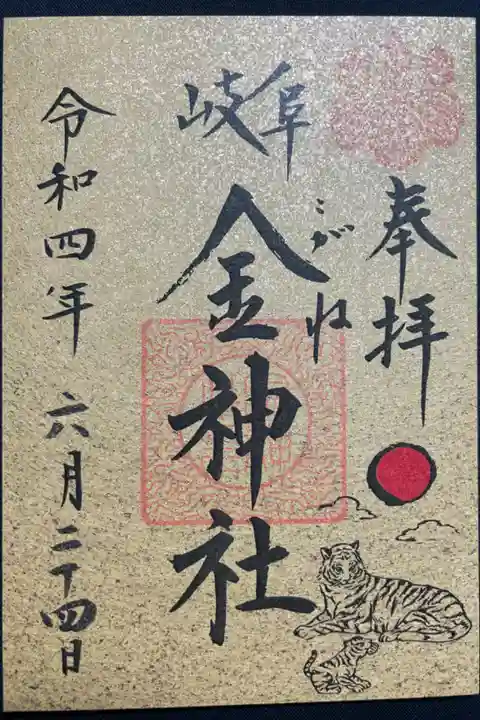 奉拝
岐阜
こがね
金神社
令和四年 六月二十四日